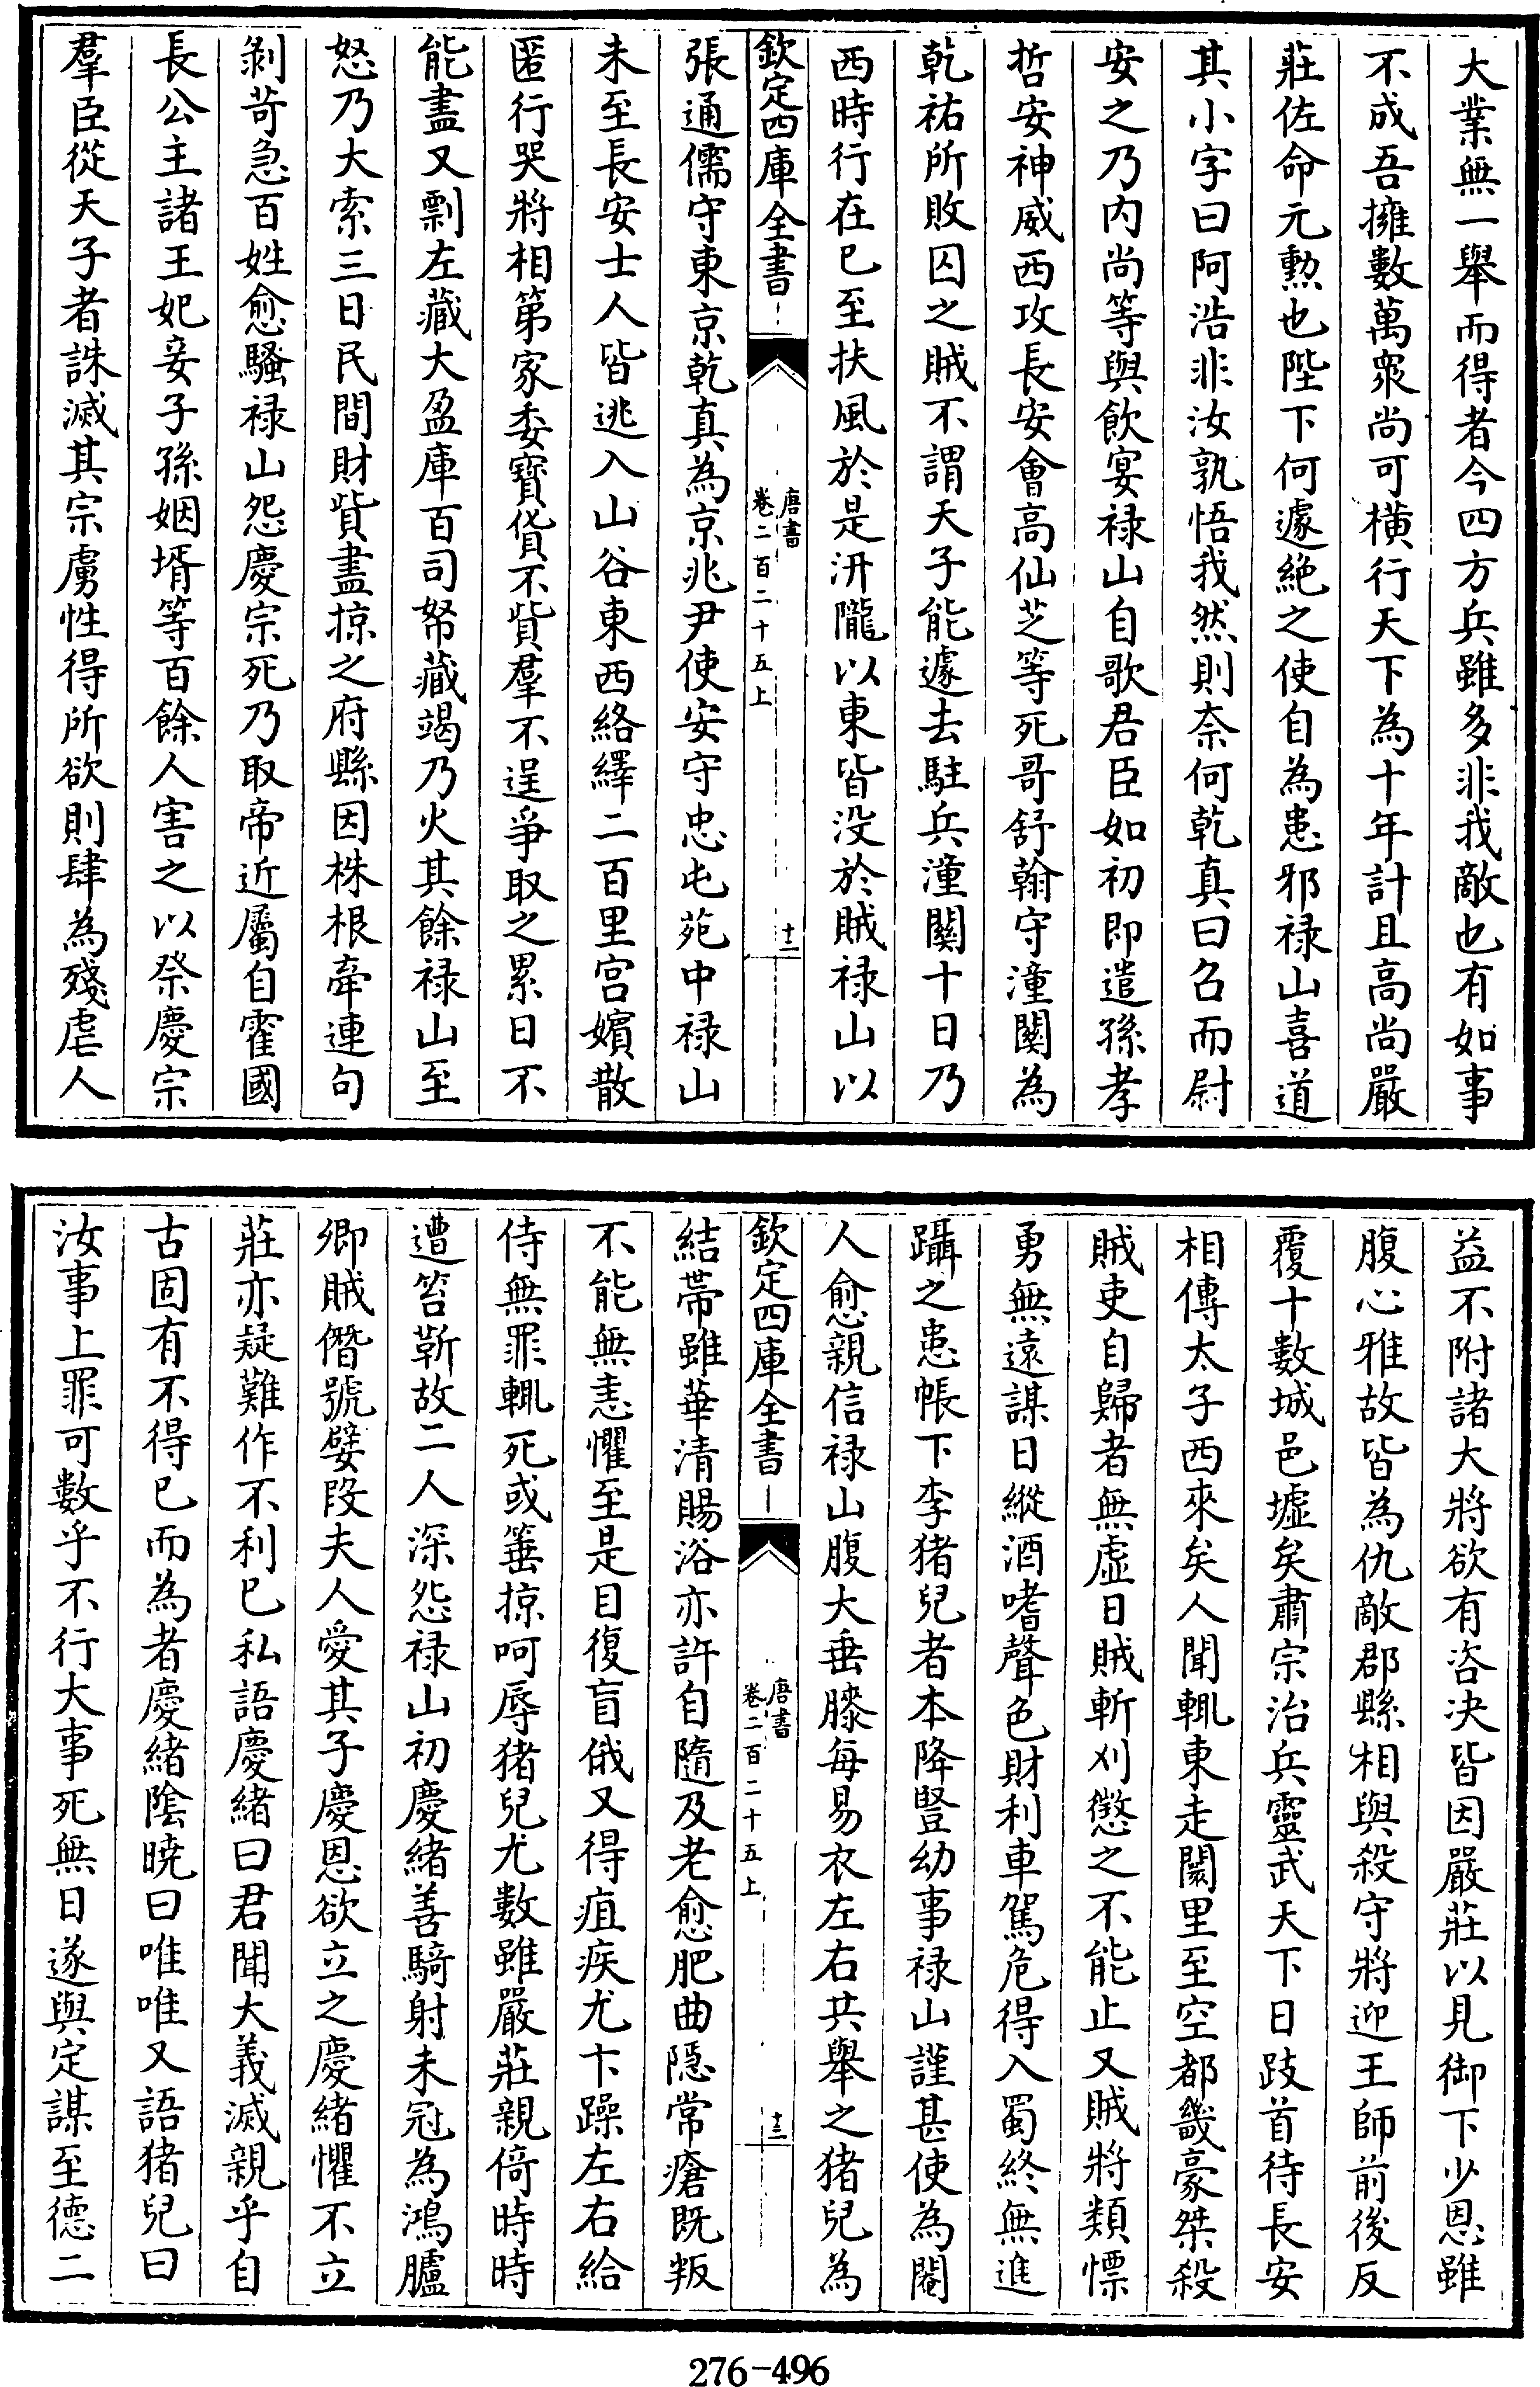 大業無一舉而得者今四方兵雖多非我敵也有如事
不成吾擁數萬衆尚可横行天下為十年計且高尚嚴
莊佐命元勲也陛下何遽絶之使自為患邪禄山喜道
其小字曰阿浩非汝孰悟我然則奈何乾真曰召而尉
安之乃内尚等與飲宴禄山自歌君臣如初即遣孫孝
哲安神威西攻長安會高仙芝等死哥舒翰守潼關為
乾祐所敗囚之賊不謂天子能遽去駐兵潼關十日乃
西時行在已至扶風於是汧隴以東皆没於賊禄山以
欽定四庫全書
唐書
卷二百二十五上
十二
張通儒守東京乾真為京兆尹使安守忠屯苑中禄山
未至長安士人皆逃入山谷東西絡繹二百里宫嬪散
匿行哭將相第家委寶貨不貲羣不逞爭取之累日不
能盡又剽左藏大盈庫百司帑藏竭乃火其餘禄山至
怒乃大索三日民間財貲盡掠之府縣因株根牽連句
剝苛急百姓愈騷禄山怨慶宗死乃取帝近屬自霍國
長公主諸王妃妾子孫姻壻等百餘人害之以祭慶宗
羣臣從天子者誅滅其宗虜性得所欲則肆為殘虐人
益不附諸大將欲有咨决皆因嚴莊以見御下少恩雖
腹心雅故皆為仇敵郡縣相與殺守將迎王師前後反
覆十數城邑墟矣肅宗治兵靈武天下日跂首待長安
相傳太子西來矣人聞輒東走闤里至空都畿豪桀殺
賊吏自歸者無虚日賊斬刈懲之不能止又賊將類慓
勇無遠謀日縱酒嗜聲色財利車駕危得入蜀終無進
躡之患帳下李猪兒者本降豎幼事禄山謹甚使為閹
人愈親信禄山腹大垂膝每易衣左右共舉之猪兒為
欽定四庫全書
唐書
卷二百二十五上
十三
結帶雖華清賜浴亦許自隨及老愈肥曲隠常瘡既叛
不能無恚懼至是目復盲俄又得疽疾尤卞躁左右給
侍無罪輒死或箠掠呵辱猪兒尤數雖嚴莊親倚時時
遭笞靳故二人深怨禄山初慶緒善騎射未冠為鴻臚
卿賊僭號嬖段夫人愛其子慶恩欲立之慶緒懼不立
莊亦疑難作不利己私語慶緒曰君聞大義滅親乎自
古固有不得已而為者慶緒隂曉曰唯唯又語猪兒曰
汝事上罪可數乎不行大事死無日遂與定謀至德二
276-496